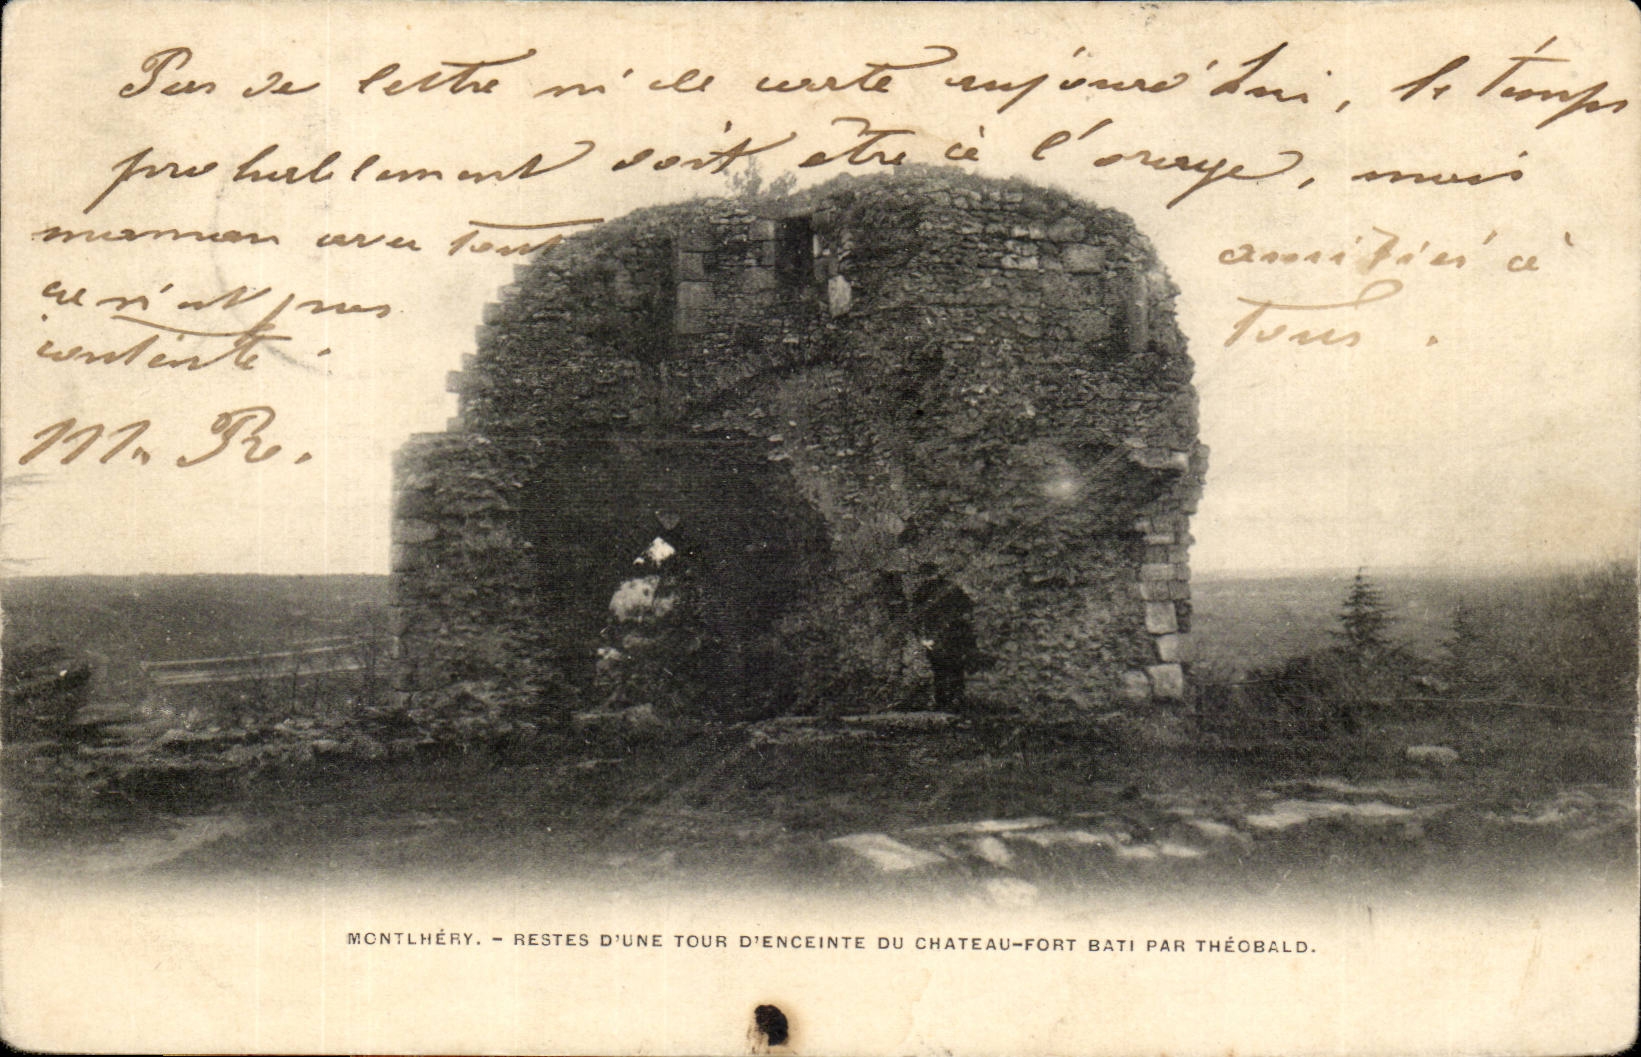 Pas de lettre ni de carte aujourd'hui, le temps
probablement doit être à l'orage, mais
maman avec tout
ce n'est pas
contente.
amitiés à
tous.
M. Re.
MONTLHÉRY. – RESTES D'UNE TOUR D'ENCEINTE DU CHATEAU-FORT BATI PAR THÉOBALD.